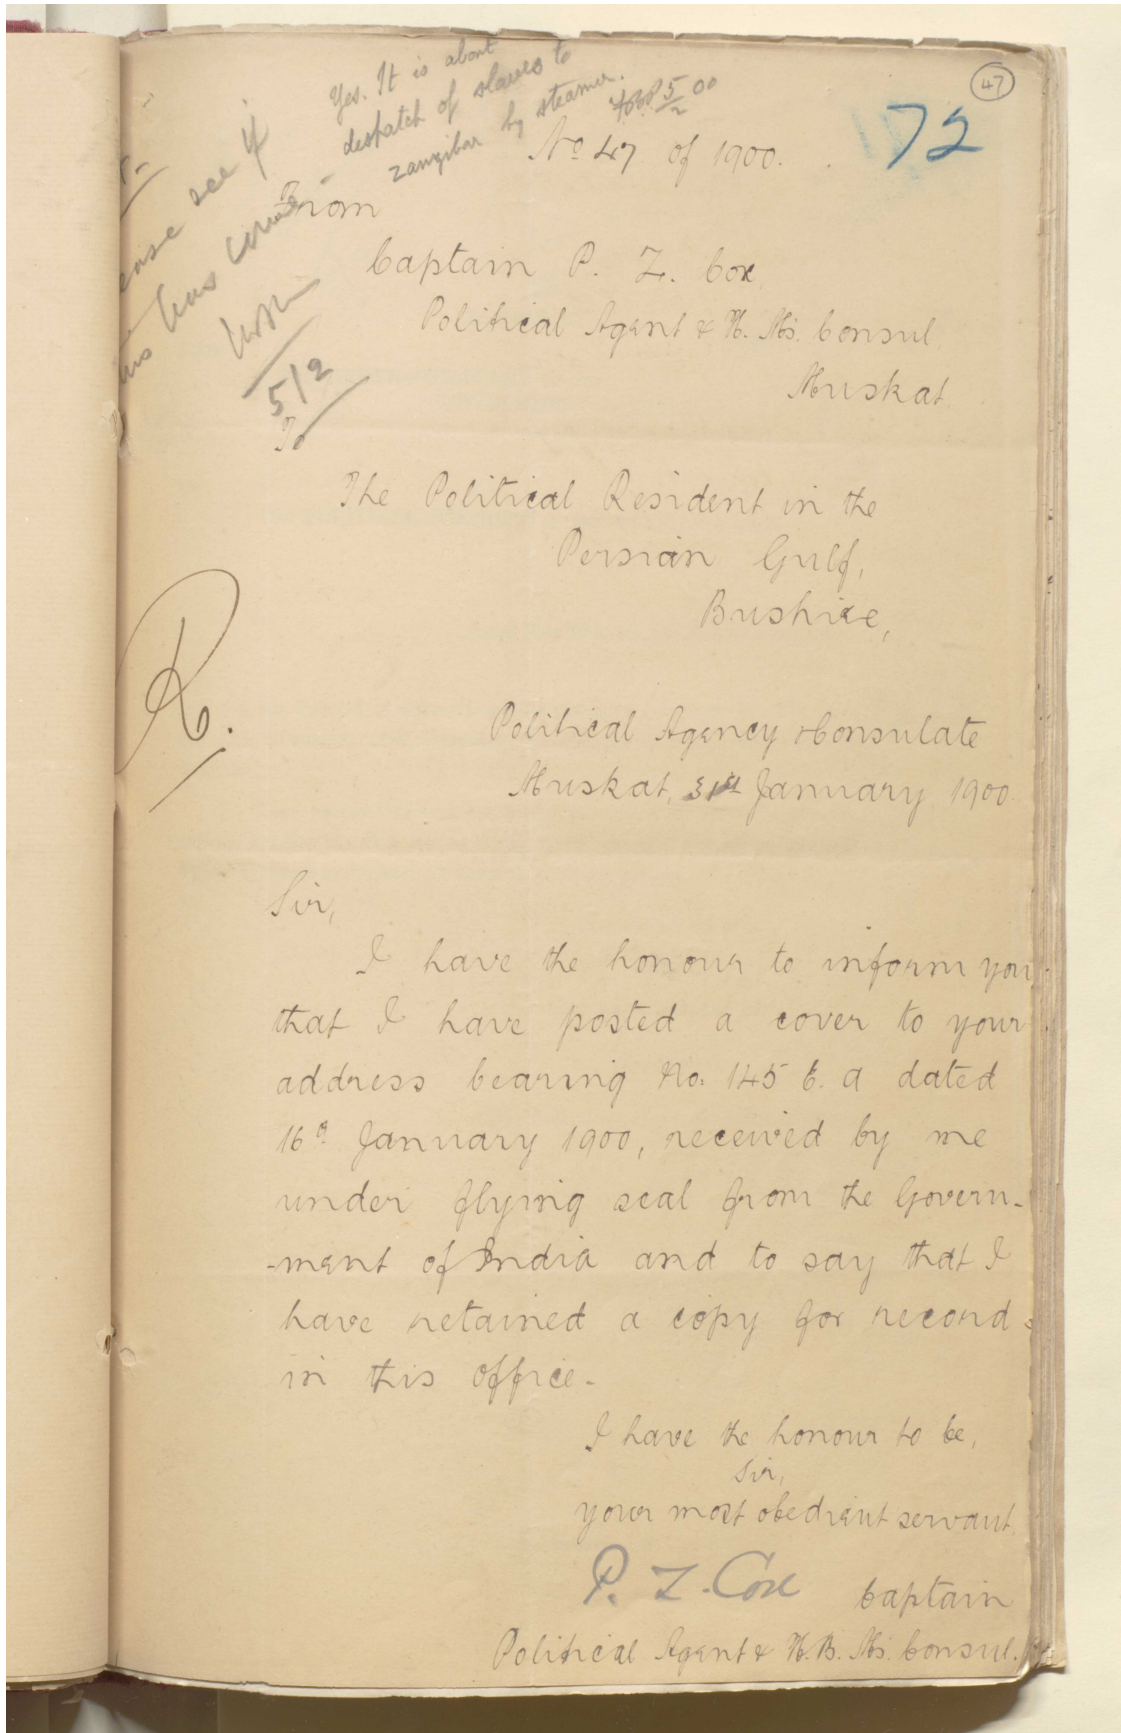 47
72
Yes. It is about
despatch of slaves to
zanzibar by steamer.
5/2 00
see if
has come
5/2
No 47 of 1900.
From
Captain P. Z. Cox
Political Agent & H. Ms. Consul
Muskat
To
The Political Resident in the
Persian Gulf,
Bushire,
R.
Political Agency & Consulate
Muskat, 31st January 1900.
Sir,
I have the honour to inform you
that I have posted a cover to your
address bearing No. 145 E. A dated
16th January 1900, received by me
under flying seal from the Govern-
-ment of India and to say that I
have retained a copy for record
in this office.
I have the honour to be,
Sir,
your most obedient servant
P. Z. Cox Captain
Political Agent & H. B. Ms. Consul.